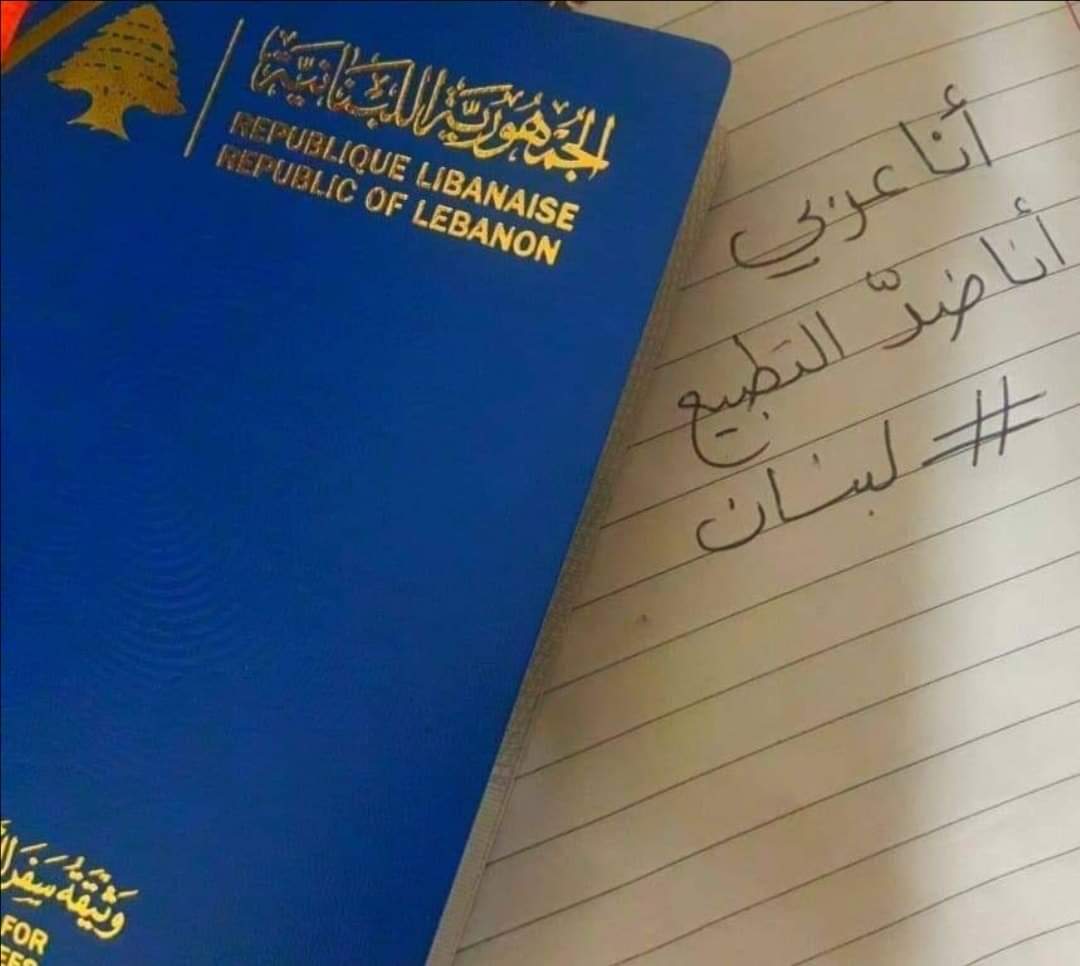 الجمهورية اللبنانية
REPUBLIQUE LIBANAISE
REPUBLIC OF LEBANON
أنا عربي
أنا ضدّ التطبيع
# لبنان
وثيقة سفر
FOR